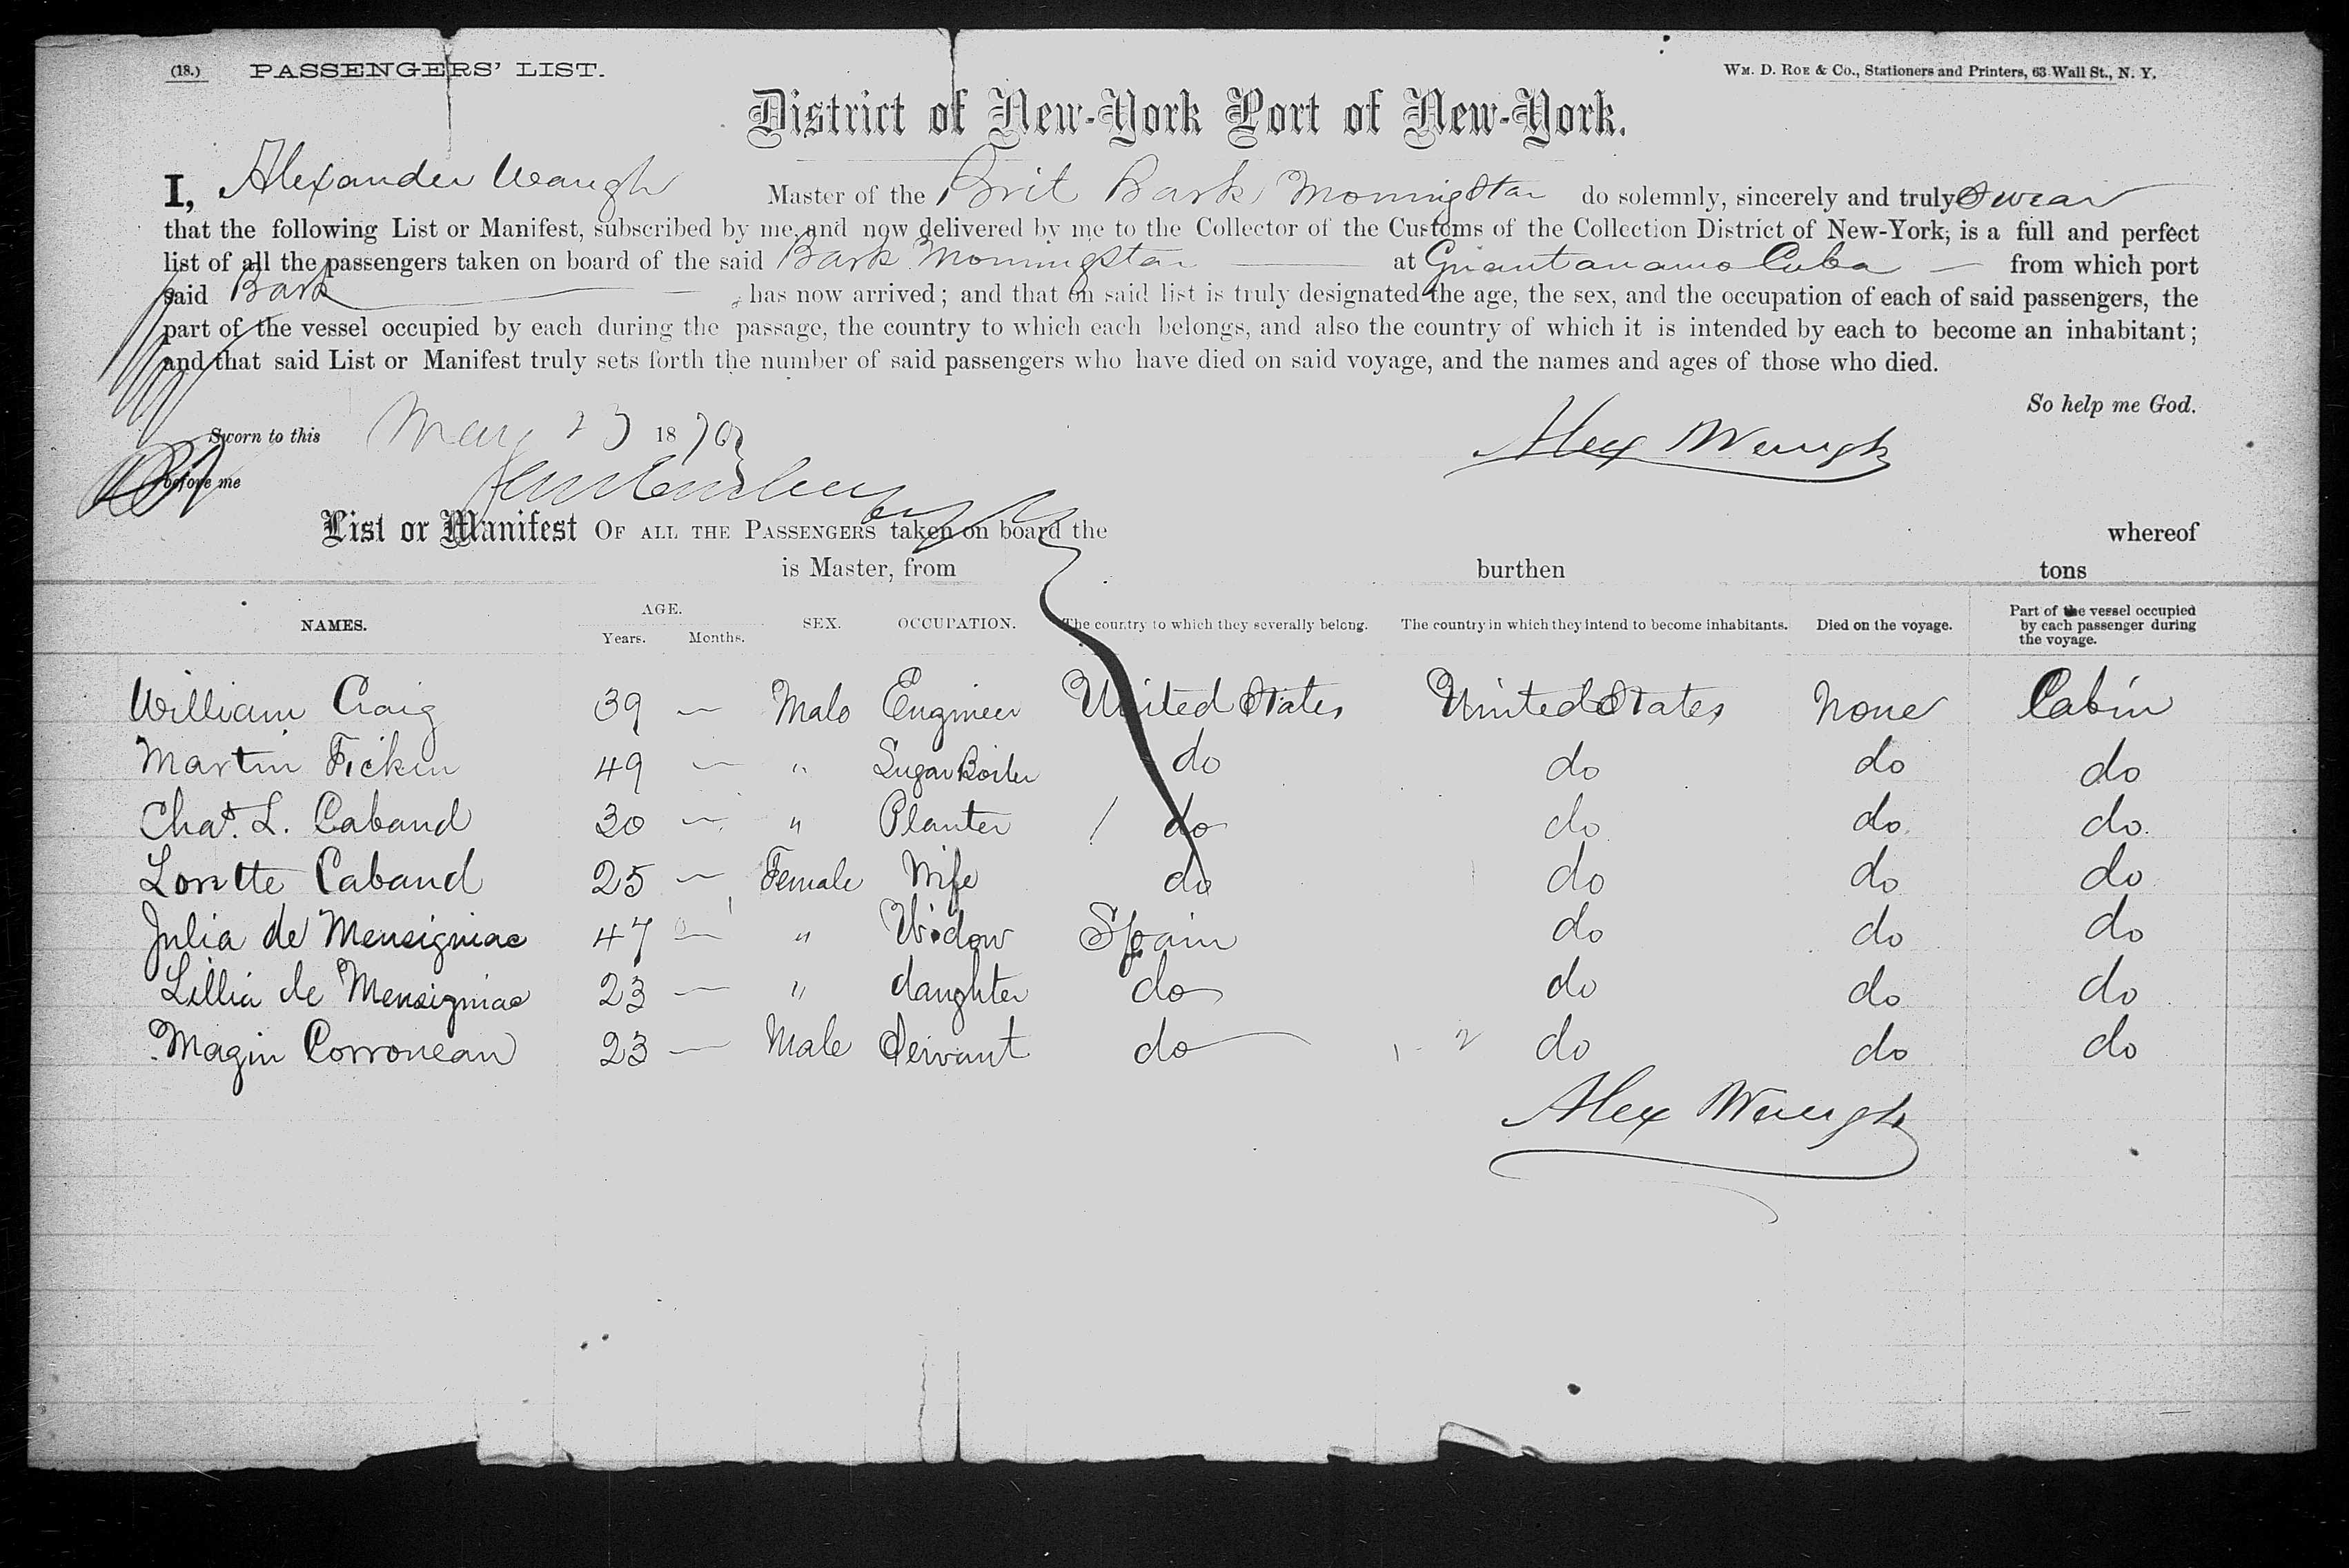 (18.) PASSENGERS' LIST.
WM. D. ROE & CO., Stationers and Printers, 63 Wall St., N. Y.
District of New-York Port of New-York.
I, Alexander Waugh Master of the Brit Bark Morningstar do solemnly, sincerely and truly Swear
that the following List or Manifest, subscribed by me, and now delivered by me to the Collector of the Customs of the Collection District of New-York, is a full and perfect
list of all the passengers taken on board of the said Bark Morningstar at Guantanamo Cuba from which port
said Bark has now arrived; and that on said list is truly designated the age, the sex, and the occupation of each of said passengers, the
part of the vessel occupied by each during the passage, the country to which each belongs, and also the country of which it is intended by each to become an inhabitant;
and that said List or Manifest truly sets forth the number of said passengers who have died on said voyage, and the names and ages of those who died.
So help me God.
Sworn to this May 23 1870 Alex Waugh
before me
List or Manifest OF ALL THE PASSENGERS taken on board the whereof
is Master, from burthen tons
NAMES. AGE. Years. Months. SEX. OCCUPATION. The country to which they severally belong. The country in which they intend to become inhabitants. Died on the voyage. Part of the vessel occupied by each passenger during the voyage.
William Craig 39 — Male Engineer United States United States None Cabin
Martin Ficken 49 — " Sugar Boiler do do do do
Chas. L. Caband 30 — " Planter / do do do do
Lorette Caband 25 — Female Wife do do do do
Julia de Mensignac 47 — " Widow Spain do do do
Lillia de Mensignac 23 — " daughter do do do do
Magin Corronean 23 — Male Servant do do do do
Alex Waugh